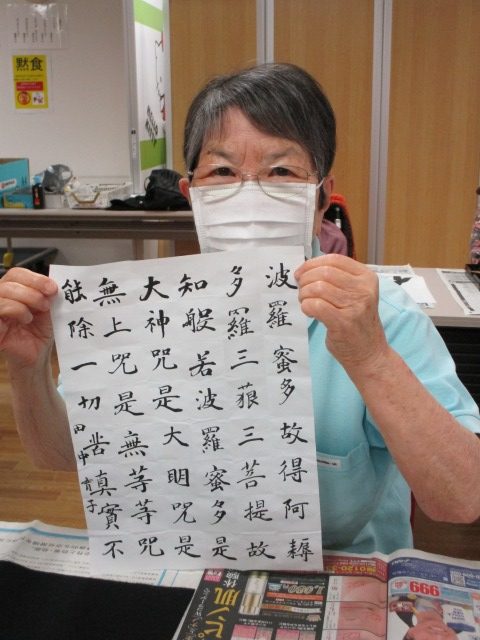 黙食
波羅蜜多故得阿耨
多羅三藐三菩提故
知般若波羅蜜多是
大神咒是大明咒是
無上咒是無等等咒
能除一切苦真實不
田中育子